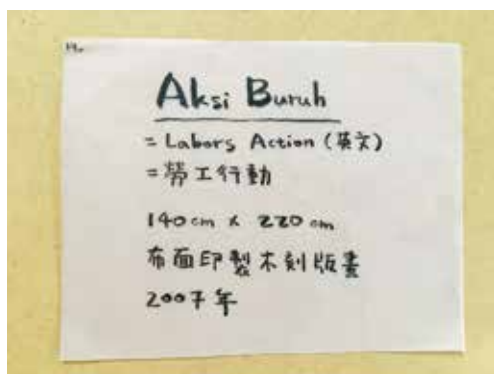 14.
Aksi Buruh
= Labors Action (英文)
= 勞工行動
140 cm x 220 cm
布面印製木刻版畫
2007年